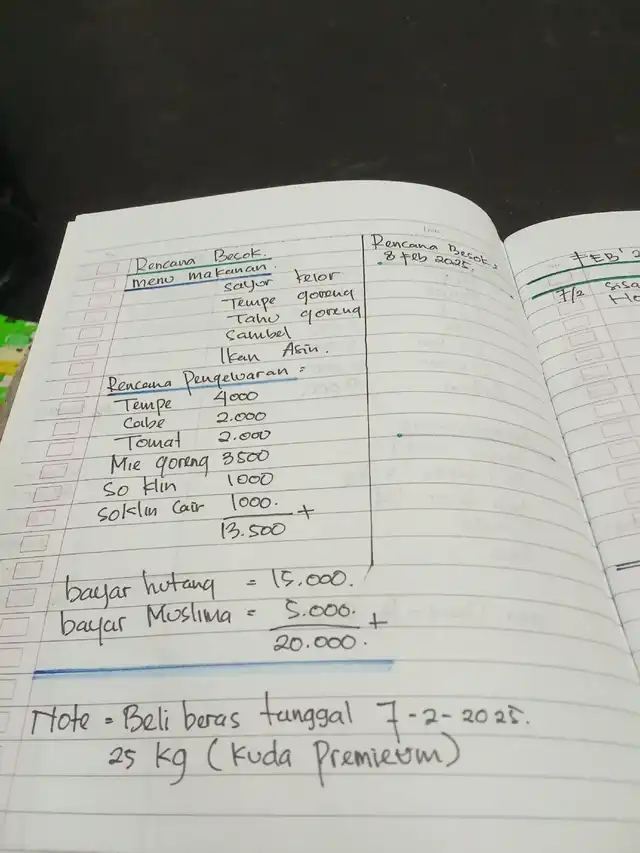 Rencana Besok.
menu makanan
sayur telor
Tempe goreng
Tahu goreng
Sambel
Ikan Asin.
Rencana Pengeluaran =
Tempe 4000
Cabe 2.000
Tomat 2.000
Mie goreng 3500
So klin 1000
soklin cair 1000. +
13.500
bayar hutang = 15.000.
bayar Muslima = 5.000. +
20.000.
Note = Beli beras tanggal 7-2-2025.
25 kg (Kuda Premieum)
Rencana Besok.
8 Feb 2025.
FEB' 2
7/2 sisa